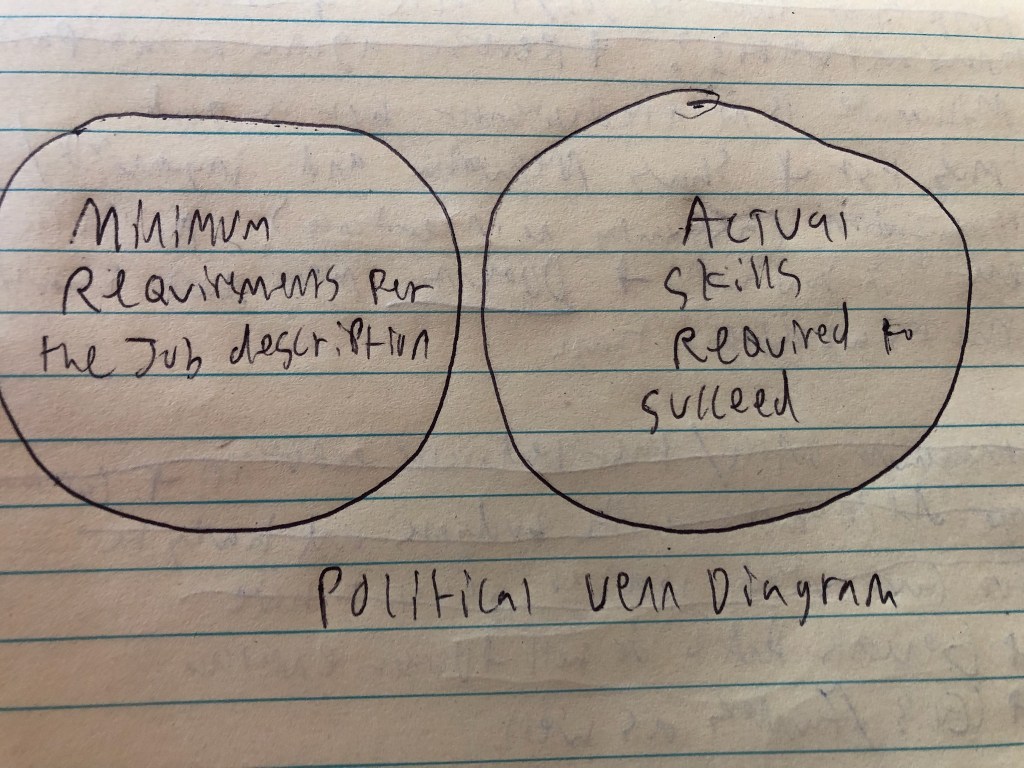 Minimum
Requirements Per
the Job description
Actual
skills
Required to
succeed
Political Venn Diagram